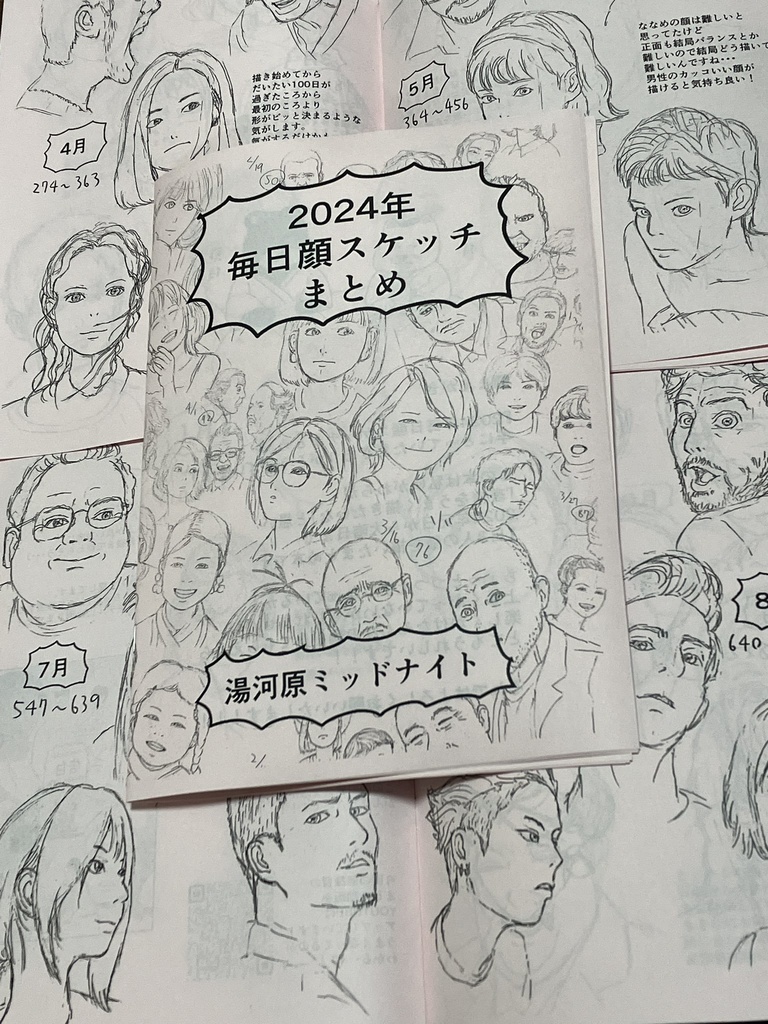 描き始めてから
だいたい100日が
過ぎたころから
最初のころより
形がビッと決まるような
気がします。
4月
274〜363
5月
364〜456
ななめの顔は難しいと
思ってたけど
正面も結局バランスとか
難しいので結局どう描いて
難しいんですね･･･
男性のカッコいい顔が
描けると気持ち良い！
4/19
50
2024年
毎日顔スケッチ
まとめ
3/16
76
1/11
3/27
87
湯河原ミッドナイト
2/
7月
547〜639
8
640